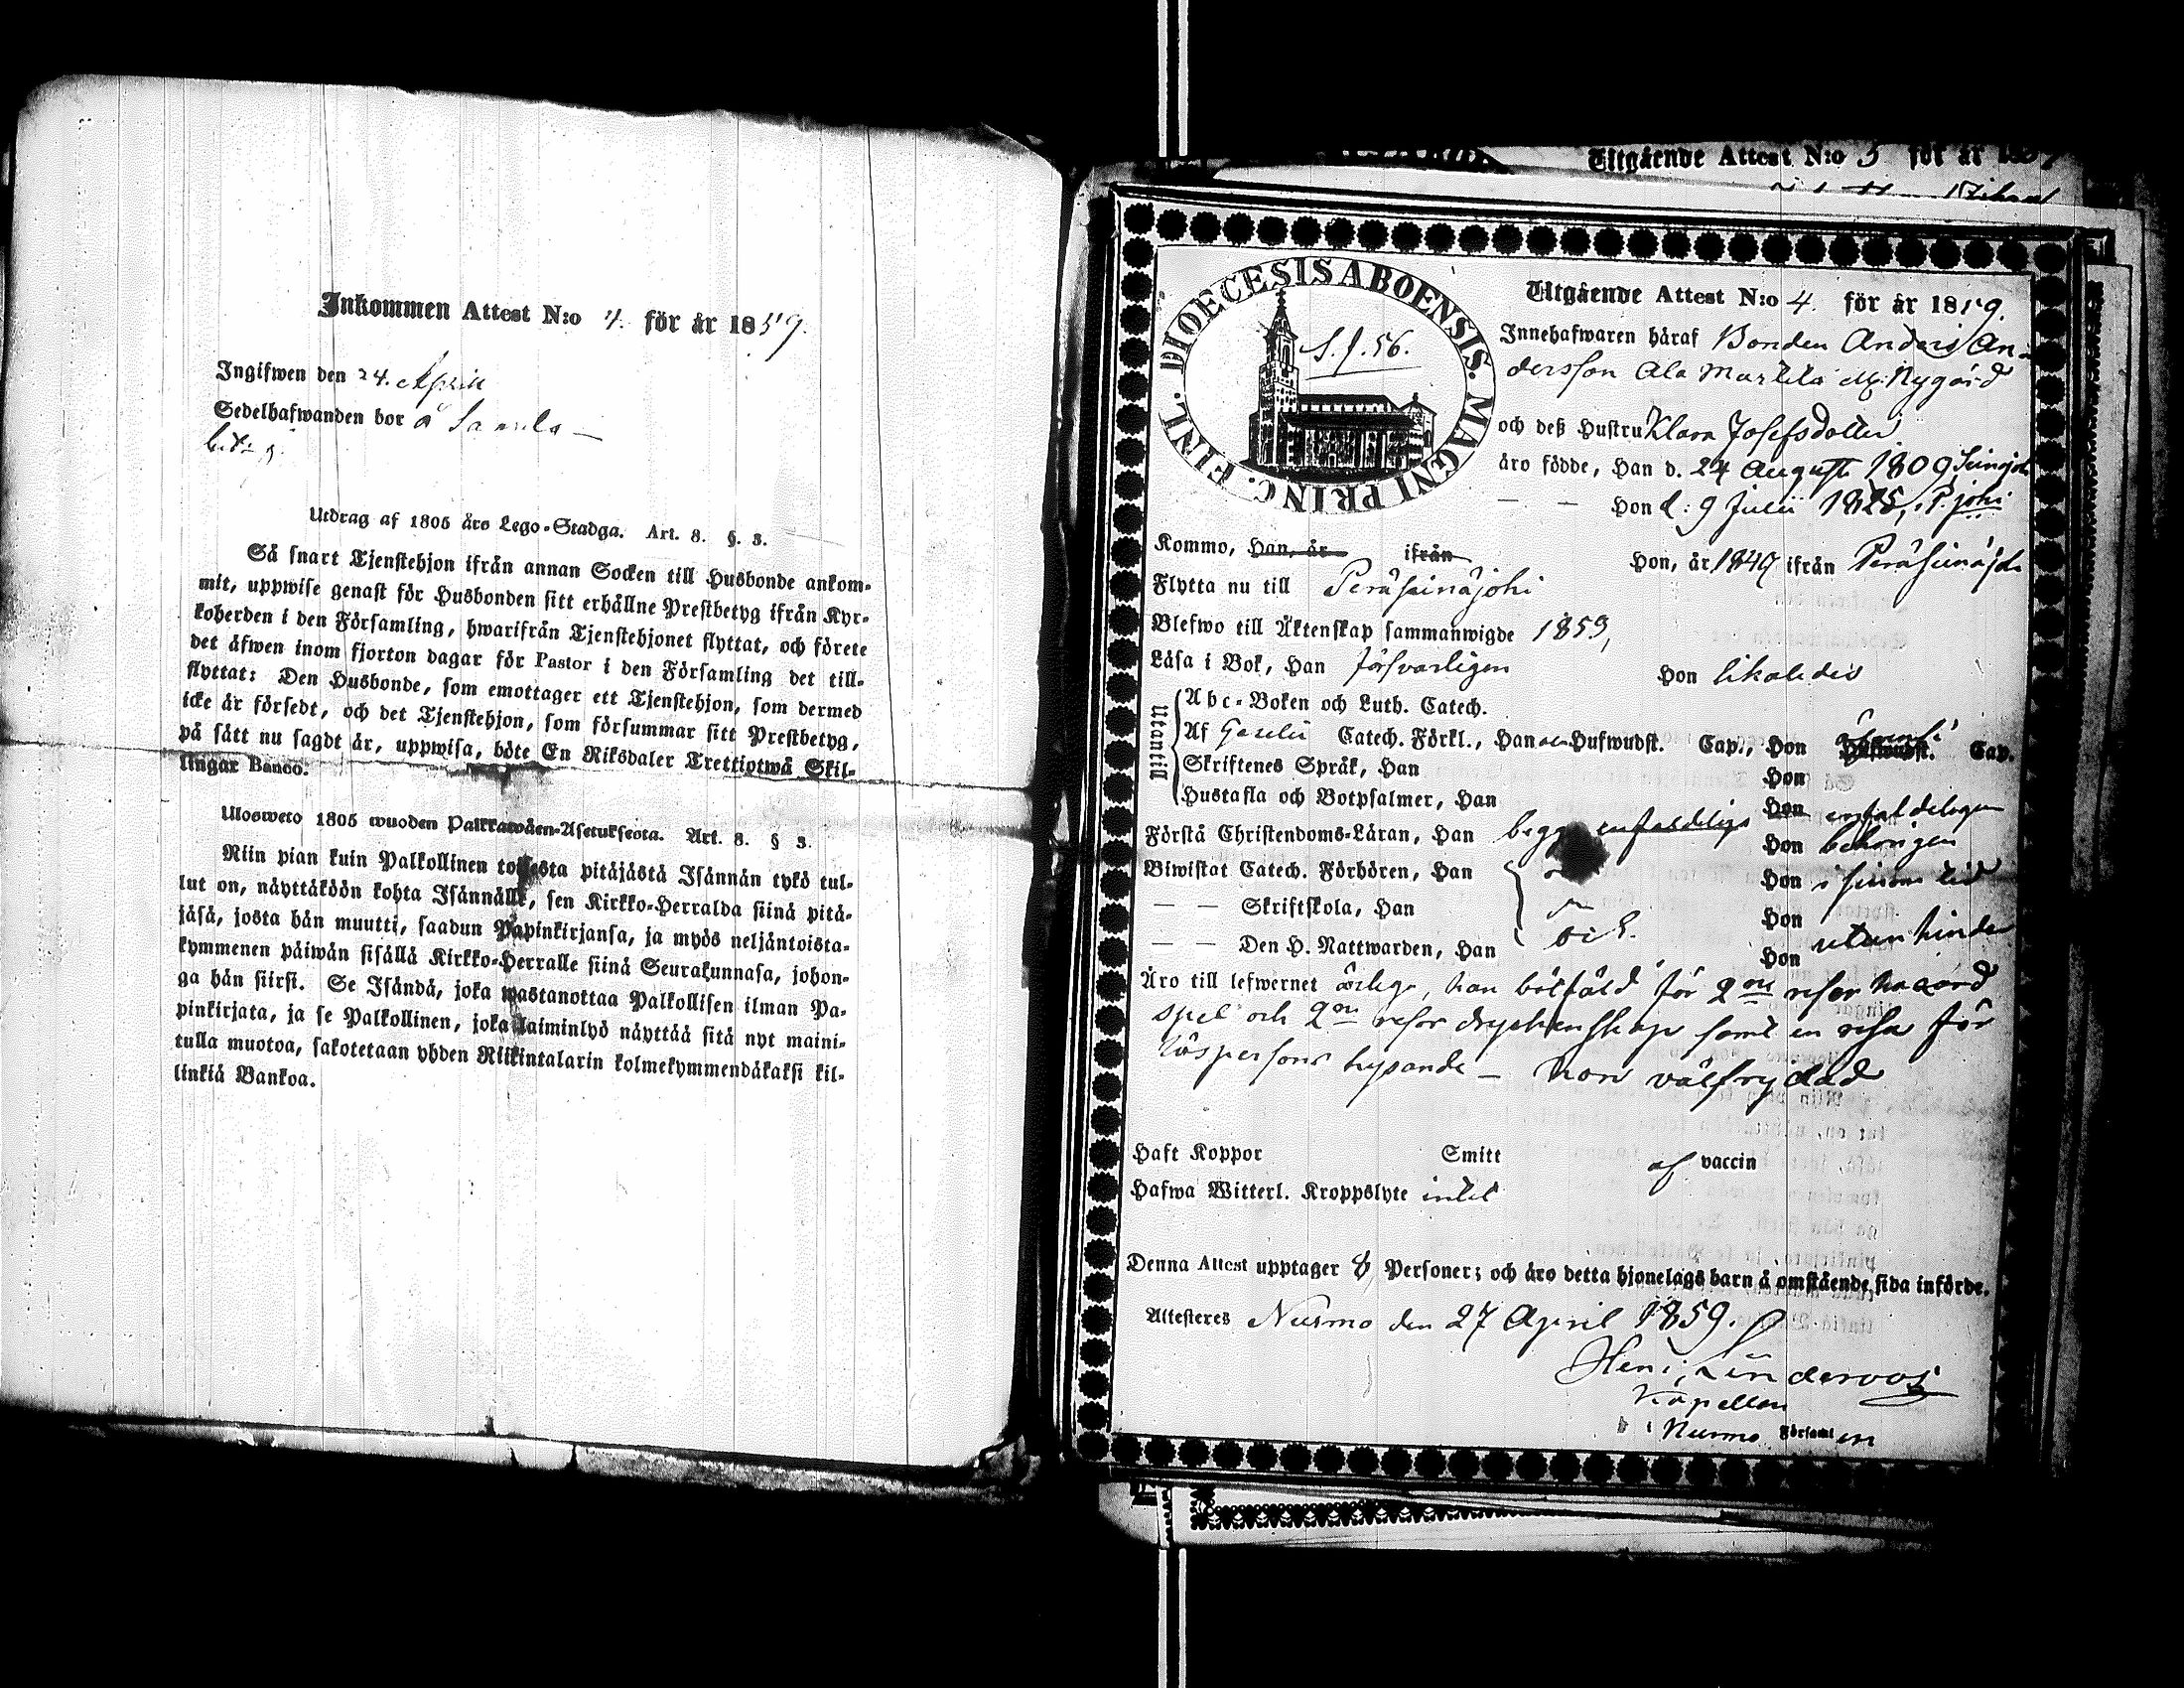 Inkommen Attest N:o 4. för år 1859.
Ingifwen den 24. April
Sedelhafwanden bor å
Utdrag af 1805 års Lego-Stadga. Art. 8. §. 3.
Så snart Tjenstehjon ifrån annan Socken till Husbonde ankom-
mit, uppwise genast för Husbonden sitt erhållne Prestbetyg ifrån Kyr-
koherden i den Församling, hwarifrån Tjenstehjonet flyttat, och förete
det äfwen inom fjorton dagar för Pastor i den Församling det till-
flyttat: Den Husbonde, som emottager ett Tjenstehjon, som dermed
icke är försedt, och det Tjenstehjon, som försummar sitt Prestbetyg,
på sätt nu sagdt är, uppwisa, böte En Riksdaler Trettiotwå Skil-
lingar Banco.
Ulosweto 1805 wuoden Palkkawäen-Asetuksesta. Art. 8. § 3.
Niin pian kuin Palkollinen toisesta pitäjästä Isännän tykö tul-
lut on, näyttäköön kohta Isännälle, sen Kirkko-Herralda siinä pitä-
jäsä, josta hän muutti, saadun Papinkirjansa, ja myös neljäntoista-
kymmenen päiwän sisällä Kirkko-Herralle siinä Seurakunnasa, johon-
ga hän siirsi. Se Isändä, joka wastanottaa Palkollisen ilman Pa-
pinkirjata, ja se Palkollinen, joka laiminlyö näyttää sitä nyt maini-
tulla muotoa, sakotetaan yhden Riikintalarin kolmekymmendäkaksi kil-
linkiä Bankoa.
Utgående Attest N:o 3 för år
DIOECESIS ABOENSIS. MAGNI PRINC. FINL.
S. J. 56.
Utgående Attest N:o 4. för år 1859.
Innehafwaren häraf Bonden Anders An-
dersson Ala Martila Nygård
och deß Hustru Klara Josefsdotter
äro födde, Han d. 24 Augusti 1809
— — Hon d: 9 Julii 1825,
Kommo, Han, år ifrån Hon, år 1849 ifrån Peräseinäjoki
Flytta nu till Peräseinäjoki
Blefwo till Äktenskap sammanwigde 1859,
Läsa i Bok, Han försvarligen Hon likaledes
Utantill
Abc-Boken och Luth. Catech.
Af Catech. Förkl., Han Hufwudst. Cap., Hon Hufwudst. Cap.
Skriftenes Språk, Han Hon
Hustafla och Botpsalmer, Han Hon
Förstå Christendoms-Läran, Han Hon
Biwistat Catech. Förhören, Han Hon
— — Skriftskola, Han Hon
— — Den H. Nattwarden, Han Hon
Äro till lefwernet ärlige, han bötfäld för 2 resor
spel och 2 resor dryckenskap samt en resa för
hysande — hon välfrejdad
Haft Koppor Smitt af vaccin
Hafwa Witterl. Kroppslyte intet
Denna Attest upptager 8 Personer; och äro detta hjonelags barn å omstående sida införde.
Attesteres Nurmo den 27 April 1859.
Kapellan
i Nurmo Församl